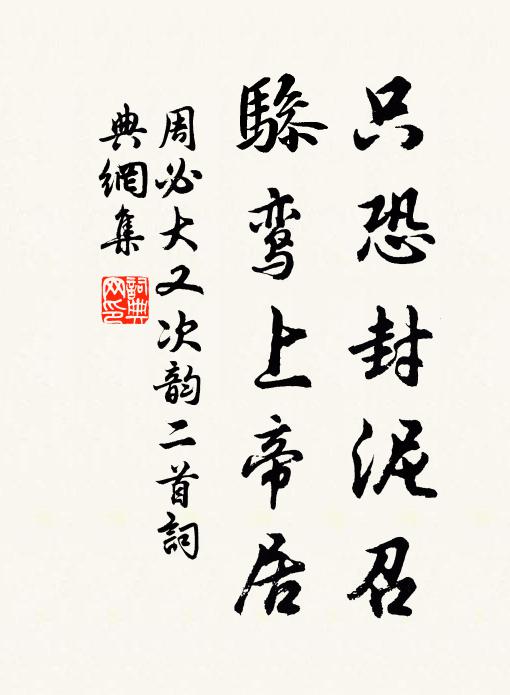 只恐封泥召
骖鸾上帝居
周必大又次韵二首詞
典網集
詞典
网印